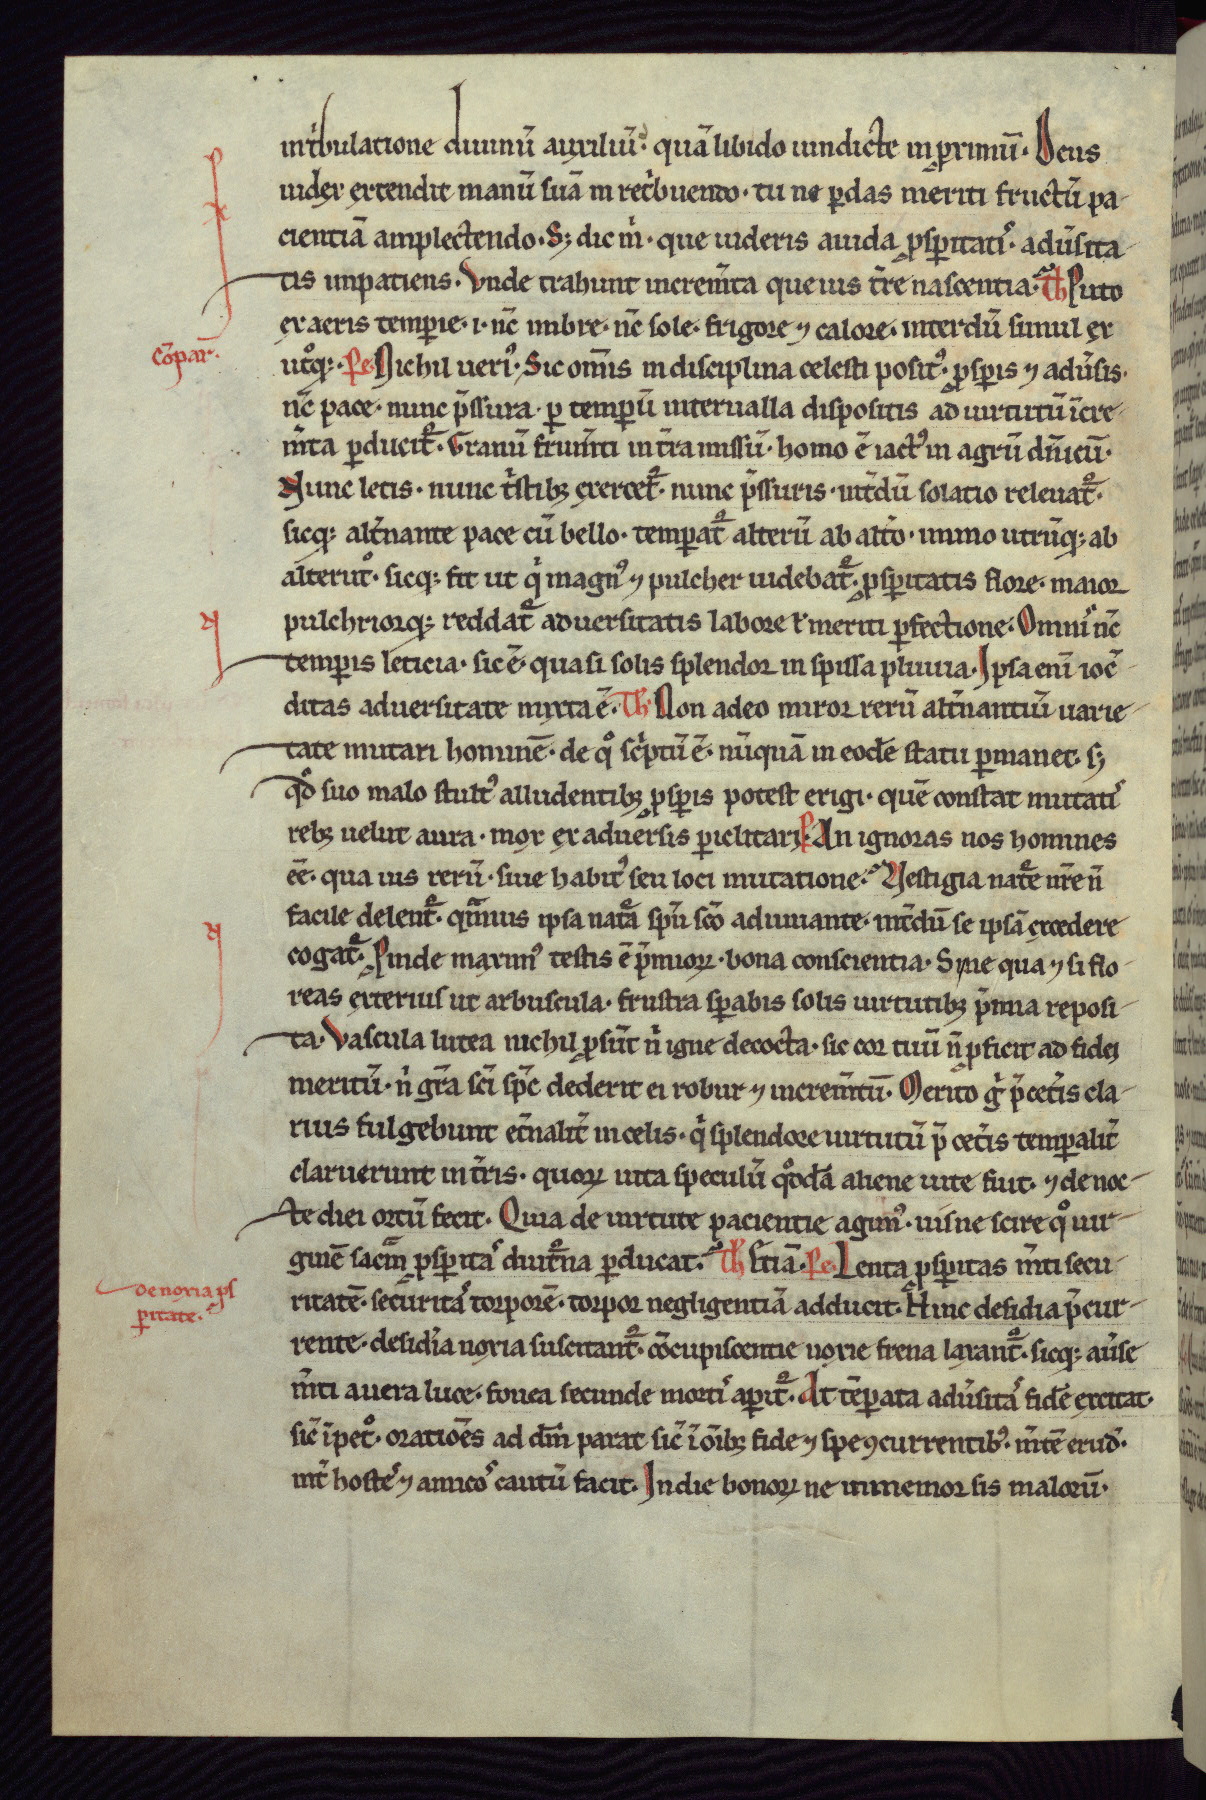 int̾bulatione diuinū auxiliū· quā libido uindicte in ꝓximū· Deus
iudex extendit manū suā in ret̾buendo· tu ne ꝑdas meriti fructū pa-
cientiā amplectendo· Sꝫ dic m̾· que uideris auida ꝓsꝑitatis̾· adūsita-
tis inpatiens· Vnde trahunt increm̄ta que uis t̄re nascentia· Th Puto
ex aeris temꝑie· i· nc̄ imbre· nc̄ sole· frigore ⁊ calore· interdū simul ex
utꝰqꝫ· Pe· Nichil uerꝰ· Sic om̄is in disciplina celesti positꝰ· ꝓsꝑis ⁊ adūsis·
nc̄ pace· nunc p̄ssura· ꝑ tempeꝝ interualla dispositis ad uirtutū īcre-
m̄ta ꝑducit̾· Granū frum̄ti in t̄ra missū· homo ē iactꝰ in agrū dn̄icū·
Nunc letis· nunc t̾stibꝫ exercet̾· nunc p̄ssuris· int̾dū solatio releuat̾·
sicqꝫ alt̾nante pace cū bello· temꝑat̾ alterū ab alt̾o· immo utrūqꝫ ab
alterut̾o· sicqꝫ fit ut q̾ magnꝰ ⁊ pulcher uidebat̾· ꝓsꝑitatis flore· maior
pulchriorqꝫ reddat̾ aduersitatis labore ł meriti ꝑfectione· Omnis̾ nc̄
temꝑis leticia· sic ē· quasi solis splendor in spissa pluuia· Ipsa enī iocū-
ditas aduersitate mixta ē· Th Non adeo miror rerū alt̾nantiū uarie-
tate mutari hominē· de q̊ sc̾ptū ē· nūquā in eodē statu ꝑmanet· sꝫ
qđ suo malo stultꝰ alludentibꝫ ꝓsꝑis potest erigi· quē constat mutatis̾
rebꝫ uelut aura· mox ex aduersis ꝑiclitari· P· An ignoras nos homines
ēē· qua uis rerū· siue habitꝰ seu loci mutatione· Vestigia nat̾e nr̄e n̄
facile delent̾· qͣmuis ipsa nat̾a spū sc̄o adiuuante· int̾dū se ipsā excedere
cogat̾· Proinde maximꝰ testis ē p̄mioꝝ· bona conscientia· Sine qua ⁊ si flo-
reas exterius ut arbuscula· frustra sꝑabis solis uirtutibꝫ p̄mia reposi-
ta· Vascula lutea nichil ꝓsūt n̾ igne decocta· sic cor tuū n̄ ꝓficit ad fidei
meritū· n̾ gr̄a sc̄i spc̄ dederit ei robur ⁊ increm̄tū· Merito g̾ p̄ cet̾is cla-
rius fulgebunt et̾nalit̾ in celis· q̾ splendore uirtutū p̄ cet̾is temꝑalit̾
claruerunt in t̾ris· quoꝝ uita speculū q̊ddā aliene uite fuit· ⁊ de noc-
te diei ortū fecit· Quia de uirtute pacientie agimꝰ· uisne scire q̊ uir-
ginē sacͣm ꝓsꝑitas̾ diut̾na ꝑducat· Th Etiā· Pe· Lenta ꝓsꝑitas m̄ti secu-
ritatē· securitas̾ torporē· torpor negligentiā adducit· Hinc desidia p̄cur-
rente· desid̾ia noxia suscitant̾· cōcupiscentie noxie frena laxant̾· sicqꝫ auꝰse
m̄ti a uera luce· fouea secunde mortis̾ aꝑit̾· At tēꝑata adūsitas̾ fidē excitat·
sic̄ īpet̊· oratiōes ad dm̄ parat sic̄ ī oīb; fide ⁊ spe ꝯcurrentibꝰ· m̄tē erud̾·
int̾ hostes̾ ⁊ amicos̾ cautū facit· In die bonoꝝ ne inmemor sis malorū·
cōpar̄·
de noxia ꝓs
ꝑitate·